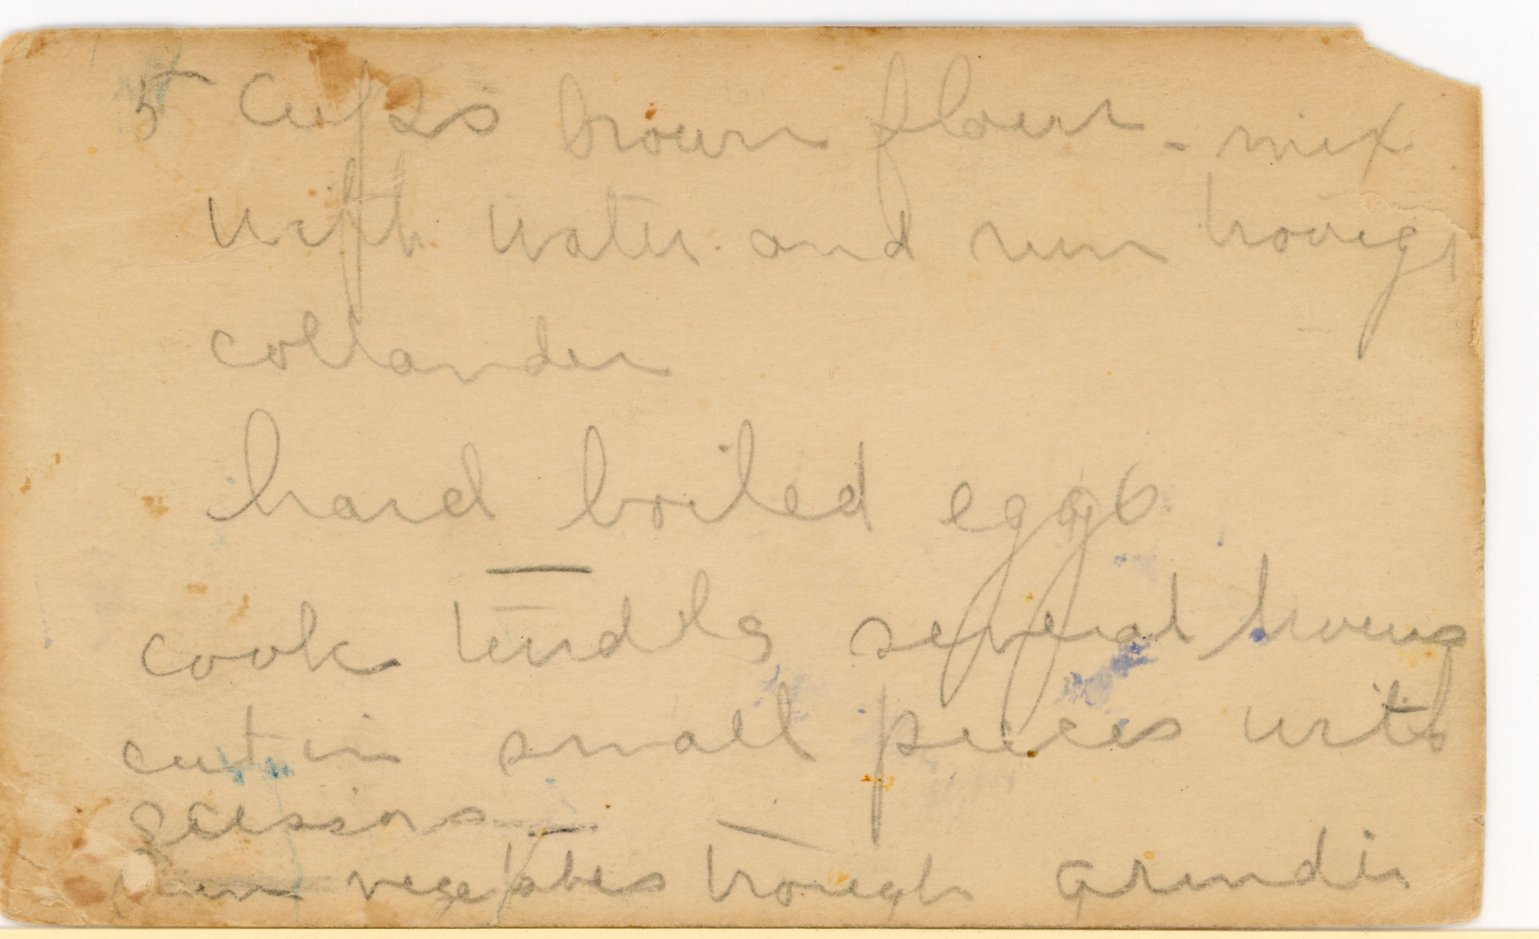 5 cups brown flour - mix
with water and run trough
collander
hard boiled eggs
cook several
cut in small pieces with
scissors
Run vegetables trough Grinder